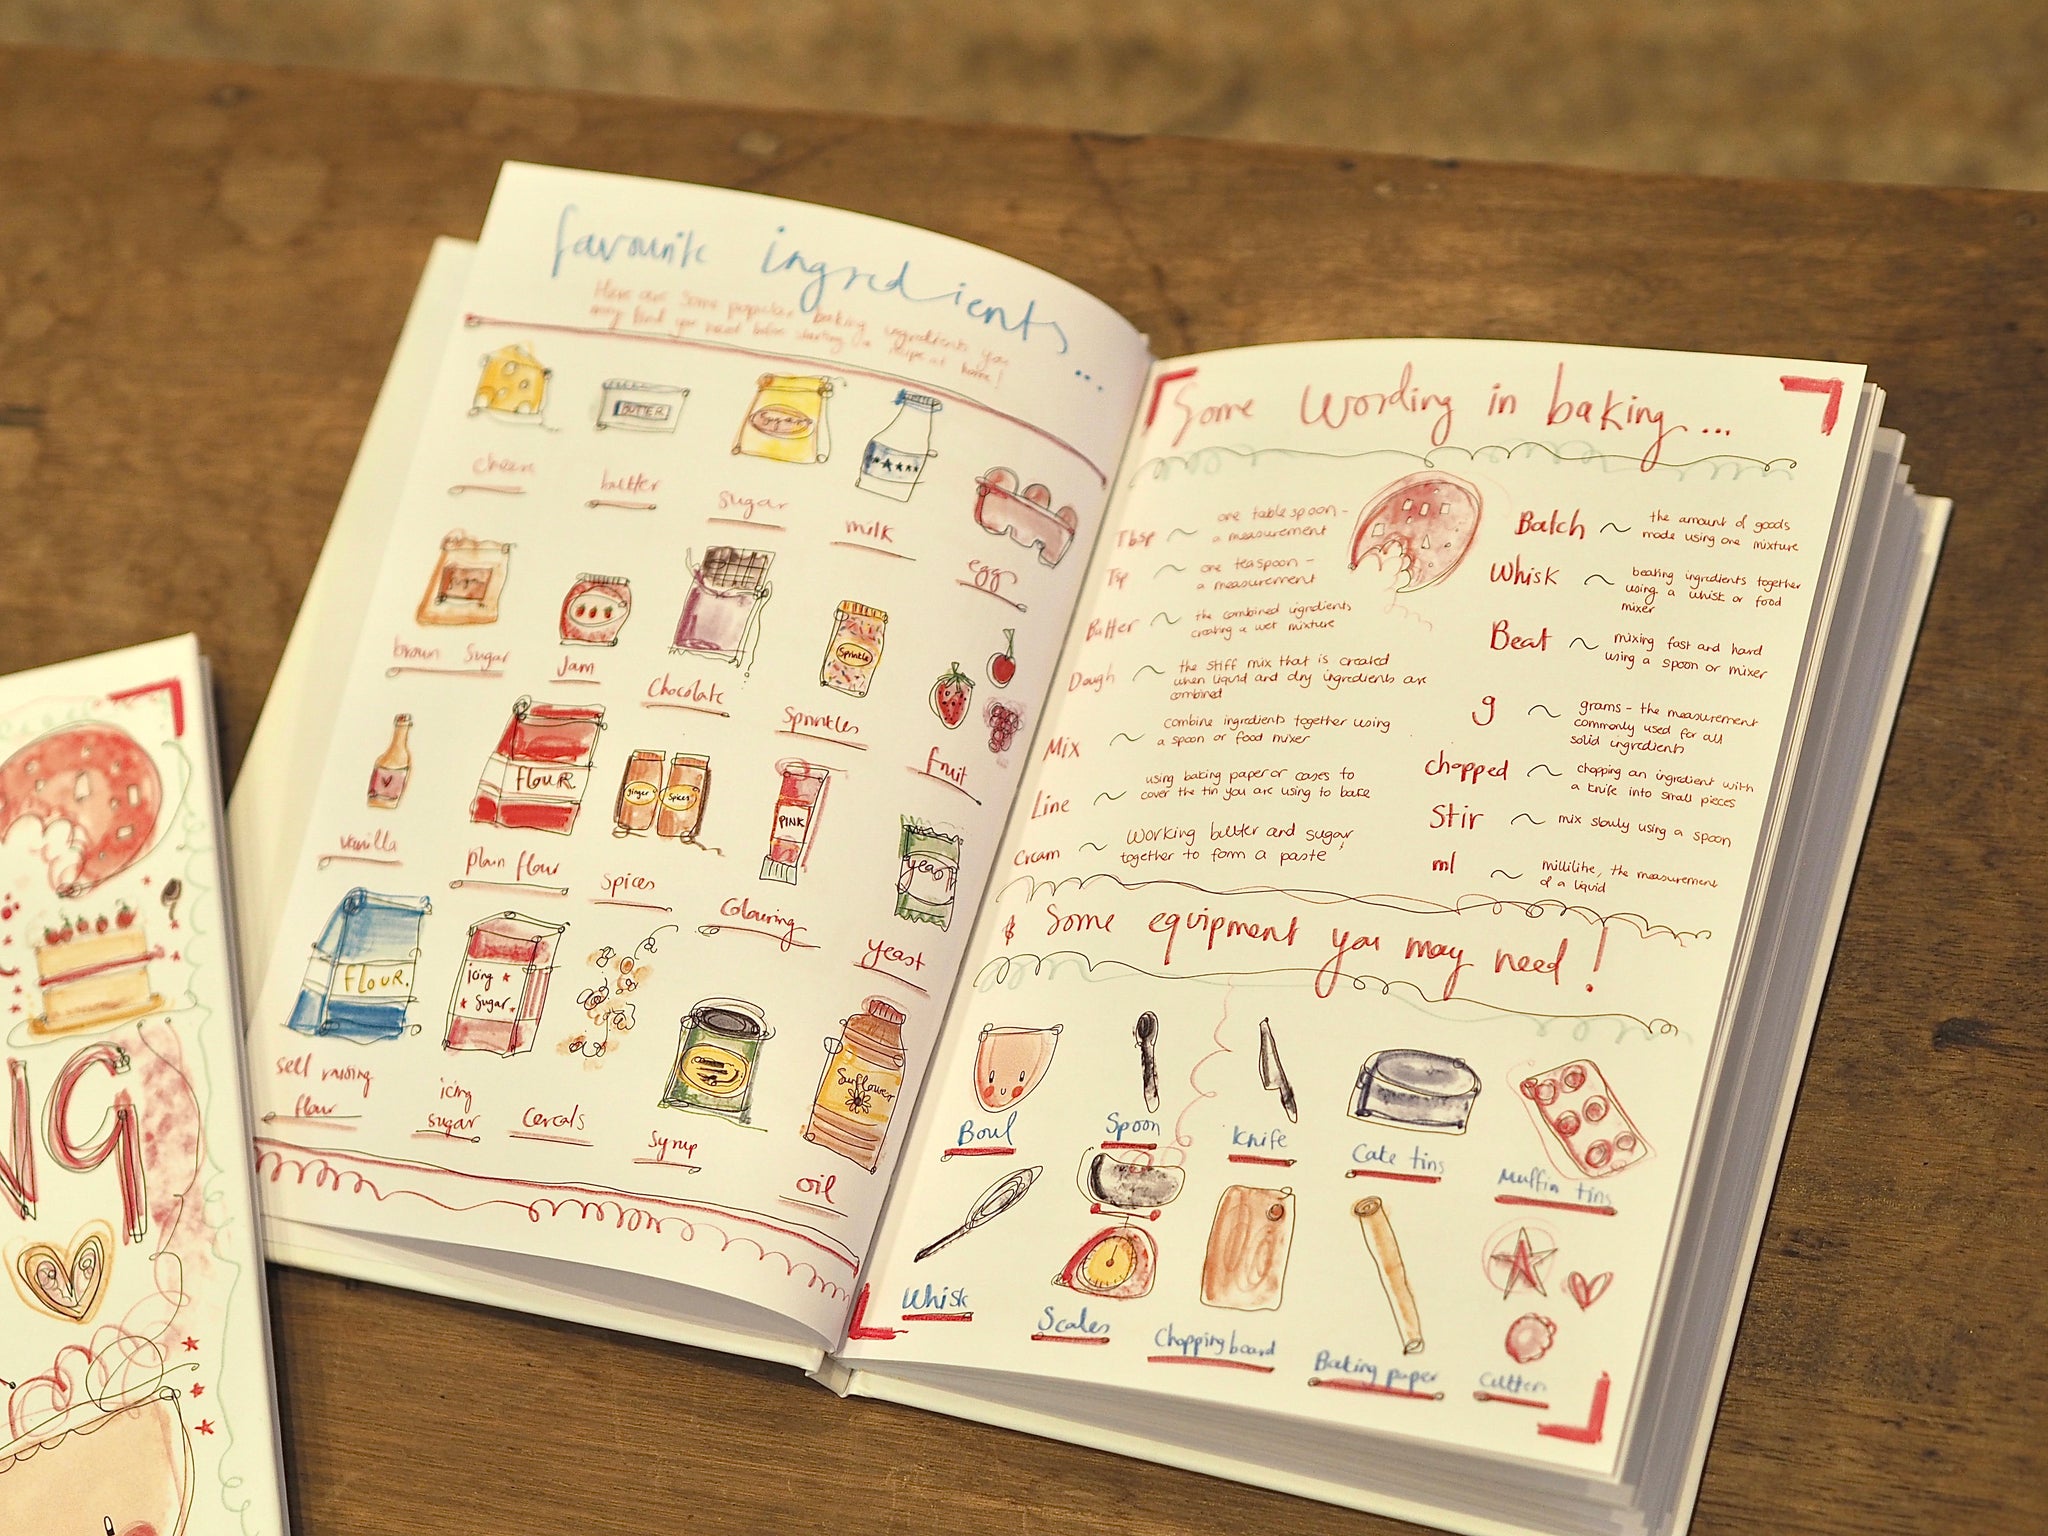 favourite ingredients...
Here are some popular baking ingredients you
may find you need before starting a recipe at home!
BUTTER
Sugar
cheese
butter
sugar
milk
eggs
Sugar
Sprinkle
brown sugar
Jam
Chocolate
Sprinkles
fruit
flour
ginger
Spices
PINK
yeast
vanilla
plain flour
spices
Colouring
yeast
FLOUR.
icing
sugar
Sunflower
self raising
flour
icing
sugar
Cereals
Syrup
oil
Some Wording in baking...
Tbsp ~ one tablespoon -
a measurement
Tsp ~ one teaspoon -
a measurement
Batter ~ the combined igredients
creating a wet mixture
Dough ~ the stiff mix that is created
when liquid and dry igredients are
combined
Mix ~ combine ingredients together using
a spoon or food mixer
Line ~ using baking paper or cases to
cover the tin you are using to bake
Cream ~ Working butter and sugar
together to form a paste!
Batch ~ the amount of goods
made using one mixture
Whisk ~ beating igredients together
using a whisk or food
mixer
Beat ~ mixing fast and hard
using a spoon or mixer
g ~ grams - the measurement
commonly used for all
solid ingredients
chopped ~ chopping an ingredient with
a knife into small pieces
Stir ~ mix slowly using a spoon
ml ~ millilitre, the measurement
of a liquid
& Some equipment you may need!
Bowl
Spoon
Knife
Cake tins
Muffin tins
Whisk
Scales
Chopping board
Baking paper
Cutters
NG